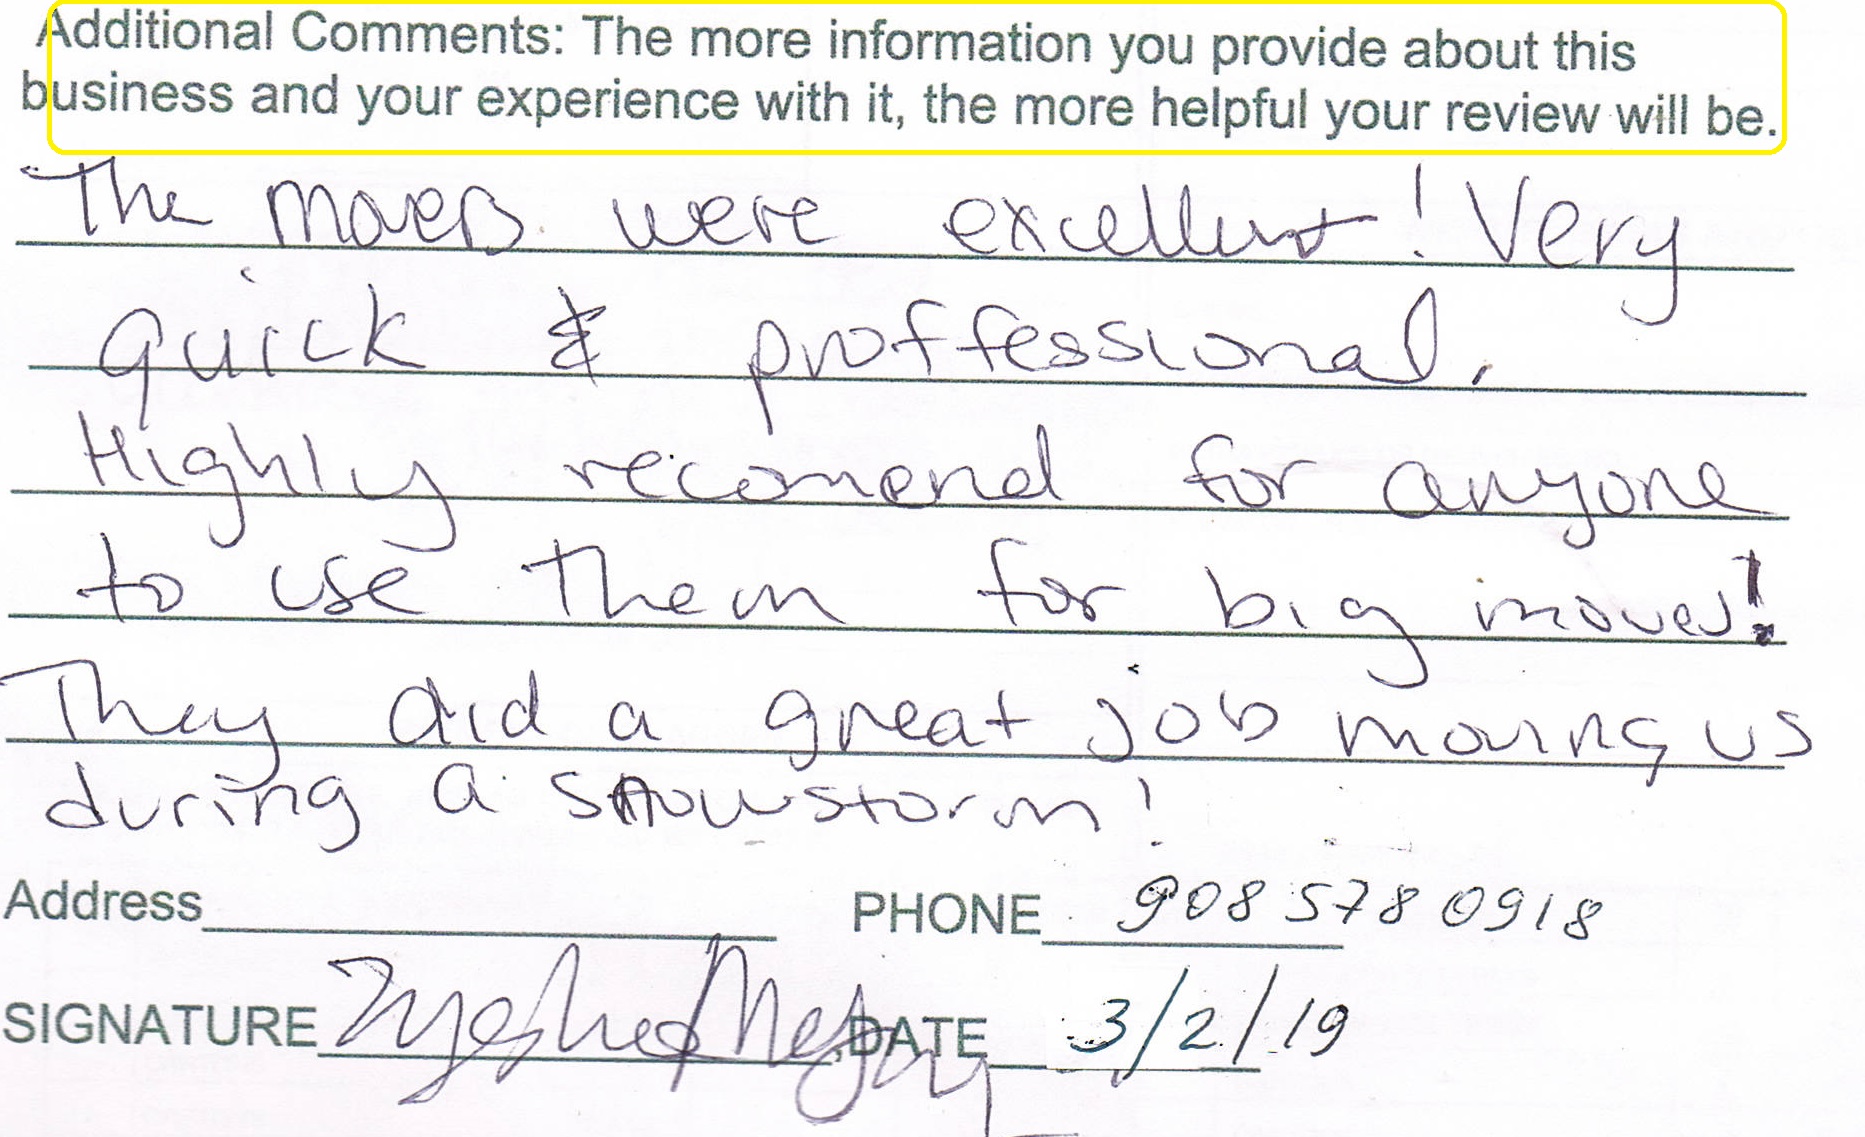 Additional Comments: The more information you provide about this
business and your experience with it, the more helpful your review will be.
The movers were excellent! Very
quick & proffessional.
Highly recomend for anyone
to use them for big moves!
They did a great job moving us
during a snowstorm!
Address PHONE 908 578 0918
SIGNATURE DATE 3/2/19